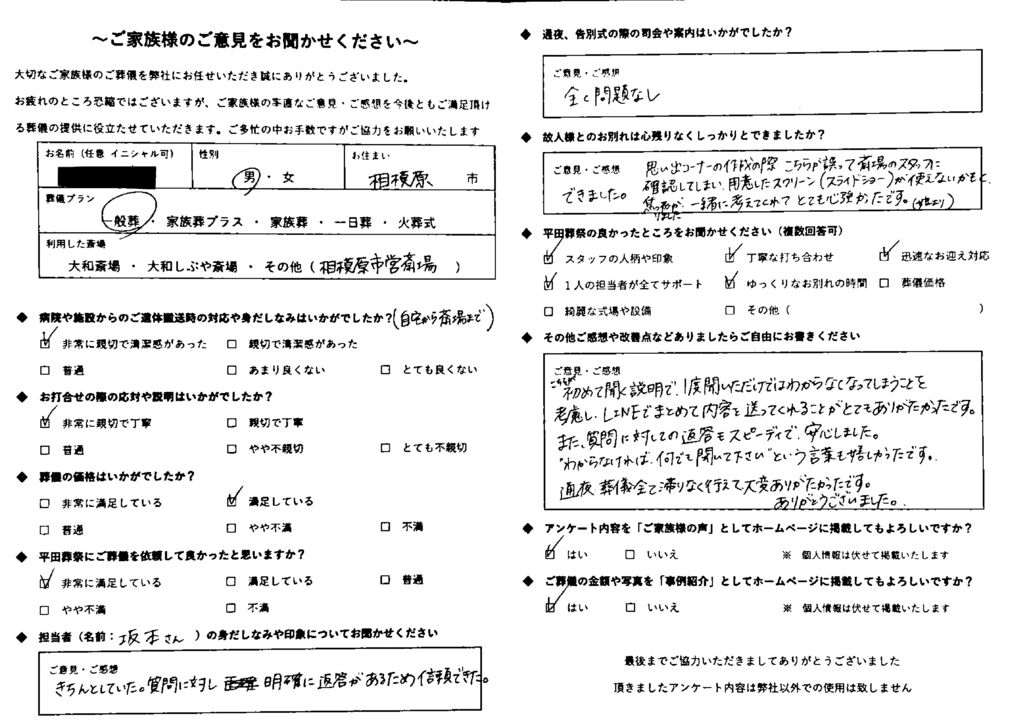 ～ご家族様のご意見をお聞かせください～
大切なご家族様のご葬儀を弊社にお任せいただき誠にありがとうございました。
お疲れのところ恐縮ではございますが、ご家族様の率直なご意見・ご感想を今後ともご満足頂け
る葬儀の提供に役立たせていただきます。ご多忙の中お手数ですがご協力をお願いいたします
お名前（任意 イニシャル可） 性別 お住まい
男・女 相模原 市
葬儀プラン
一般葬・家族葬プラス・家族葬・一日葬・火葬式
利用した斎場
大和斎場・大和しぶや斎場・その他（相模原市営斎場）
◆ 病院や施設からのご遺体搬送時の対応や身だしなみはいかがでしたか？（自宅から斎場まで）
☑ 非常に親切で清潔感があった □ 親切で清潔感があった
□ 普通 □ あまり良くない □ とても良くない
◆ お打合せの際の応対や説明はいかがでしたか？
☑ 非常に親切で丁寧 □ 親切で丁寧
□ 普通 □ やや不親切 □ とても不親切
◆ 葬儀の価格はいかがでしたか？
□ 非常に満足している ☑ 満足している
□ 普通 □ やや不満 □ 不満
◆ 平田葬祭にご葬儀を依頼して良かったと思いますか？
☑ 非常に満足している □ 満足している □ 普通
□ やや不満 □ 不満
◆ 担当者（名前：坂本さん）の身だしなみや印象についてお聞かせください
ご意見・ご感想
きちんとしていた。質問に対し 明確に返答があるため信頼できた。
◆ 通夜、告別式の際の司会や案内はいかがでしたか？
ご意見・ご感想
全く問題なし
◆ 故人様とのお別れは心残りなくしっかりとできましたか？
ご意見・ご感想
できました。
思い出コーナーの作成の際 こちらが誤って斎場のスタッフに
確認してしまい、用意したスクリーン（スライドショー）が使えないかもと
焦りましたが 一緒に考えてくれて とても心強かったです。
◆ 平田葬祭の良かったところをお聞かせください（複数回答可）
☑ スタッフの人柄や印象 ☑ 丁寧な打ち合わせ ☑ 迅速なお迎え対応
☑ 1人の担当者が全てサポート ☑ ゆっくりなお別れの時間 □ 葬儀価格
□ 綺麗な式場や設備 □ その他（ ）
◆ その他ご感想や改善点などありましたらご自由にお書きください
ご意見・ご感想
こちらが初めて聞く説明で、1度聞いただけではわからなくなってしまうことを
考慮し、LINEでまとめて内容を送ってくれることがとてもありがたかったです。
また、質問に対しての返答もスピーディで、安心しました。
"わからなければ、何でも聞いて下さい"という言葉も嬉しかったです。
通夜、葬儀全て滞りなく行えて大変ありがたかったです。
ありがとうございました。
◆ アンケート内容を「ご家族様の声」としてホームページに掲載してもよろしいですか？
☑ はい □ いいえ ※ 個人情報は伏せて掲載いたします
◆ ご葬儀の金額や写真を「事例紹介」としてホームページに掲載してもよろしいですか？
☑ はい □ いいえ ※ 個人情報は伏せて掲載いたします
最後までご協力いただきましてありがとうございました
頂きましたアンケート内容は弊社以外での使用は致しません